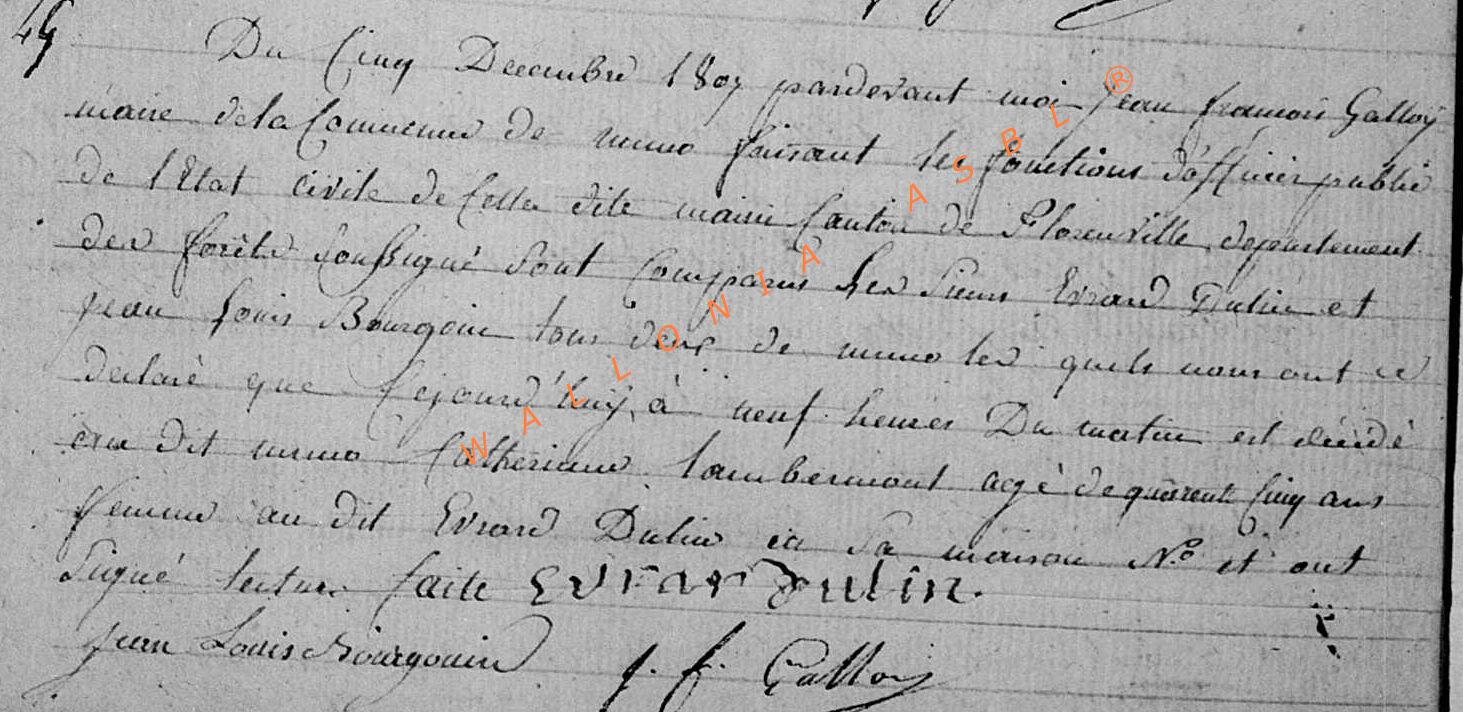 Du Cinq Decembre 1807 pardevant moi jean francois Galloÿ
maire de la Commune de muno faissant les fonctions d'officier public
de l'Etat Civile de Cette dite mairie Canton de Florenville departement
des forêts soussigné sont Comparus les sieurs Evrard Dulin et
jean louis Bourgoin tous deux de muno les quels nous ont
declaré que Cejourd'huÿ à neuf heures Du matin est décédé
au dit muno Catherinne Lambermont agé de quarente Cinq ans
femme au dit Evrard Dulin en sa maison N.º et ont
signé lecture faite Evrar Dulin.
jean Louis Bourgouin j. f. Galloy
WALLONIA ASBL ®